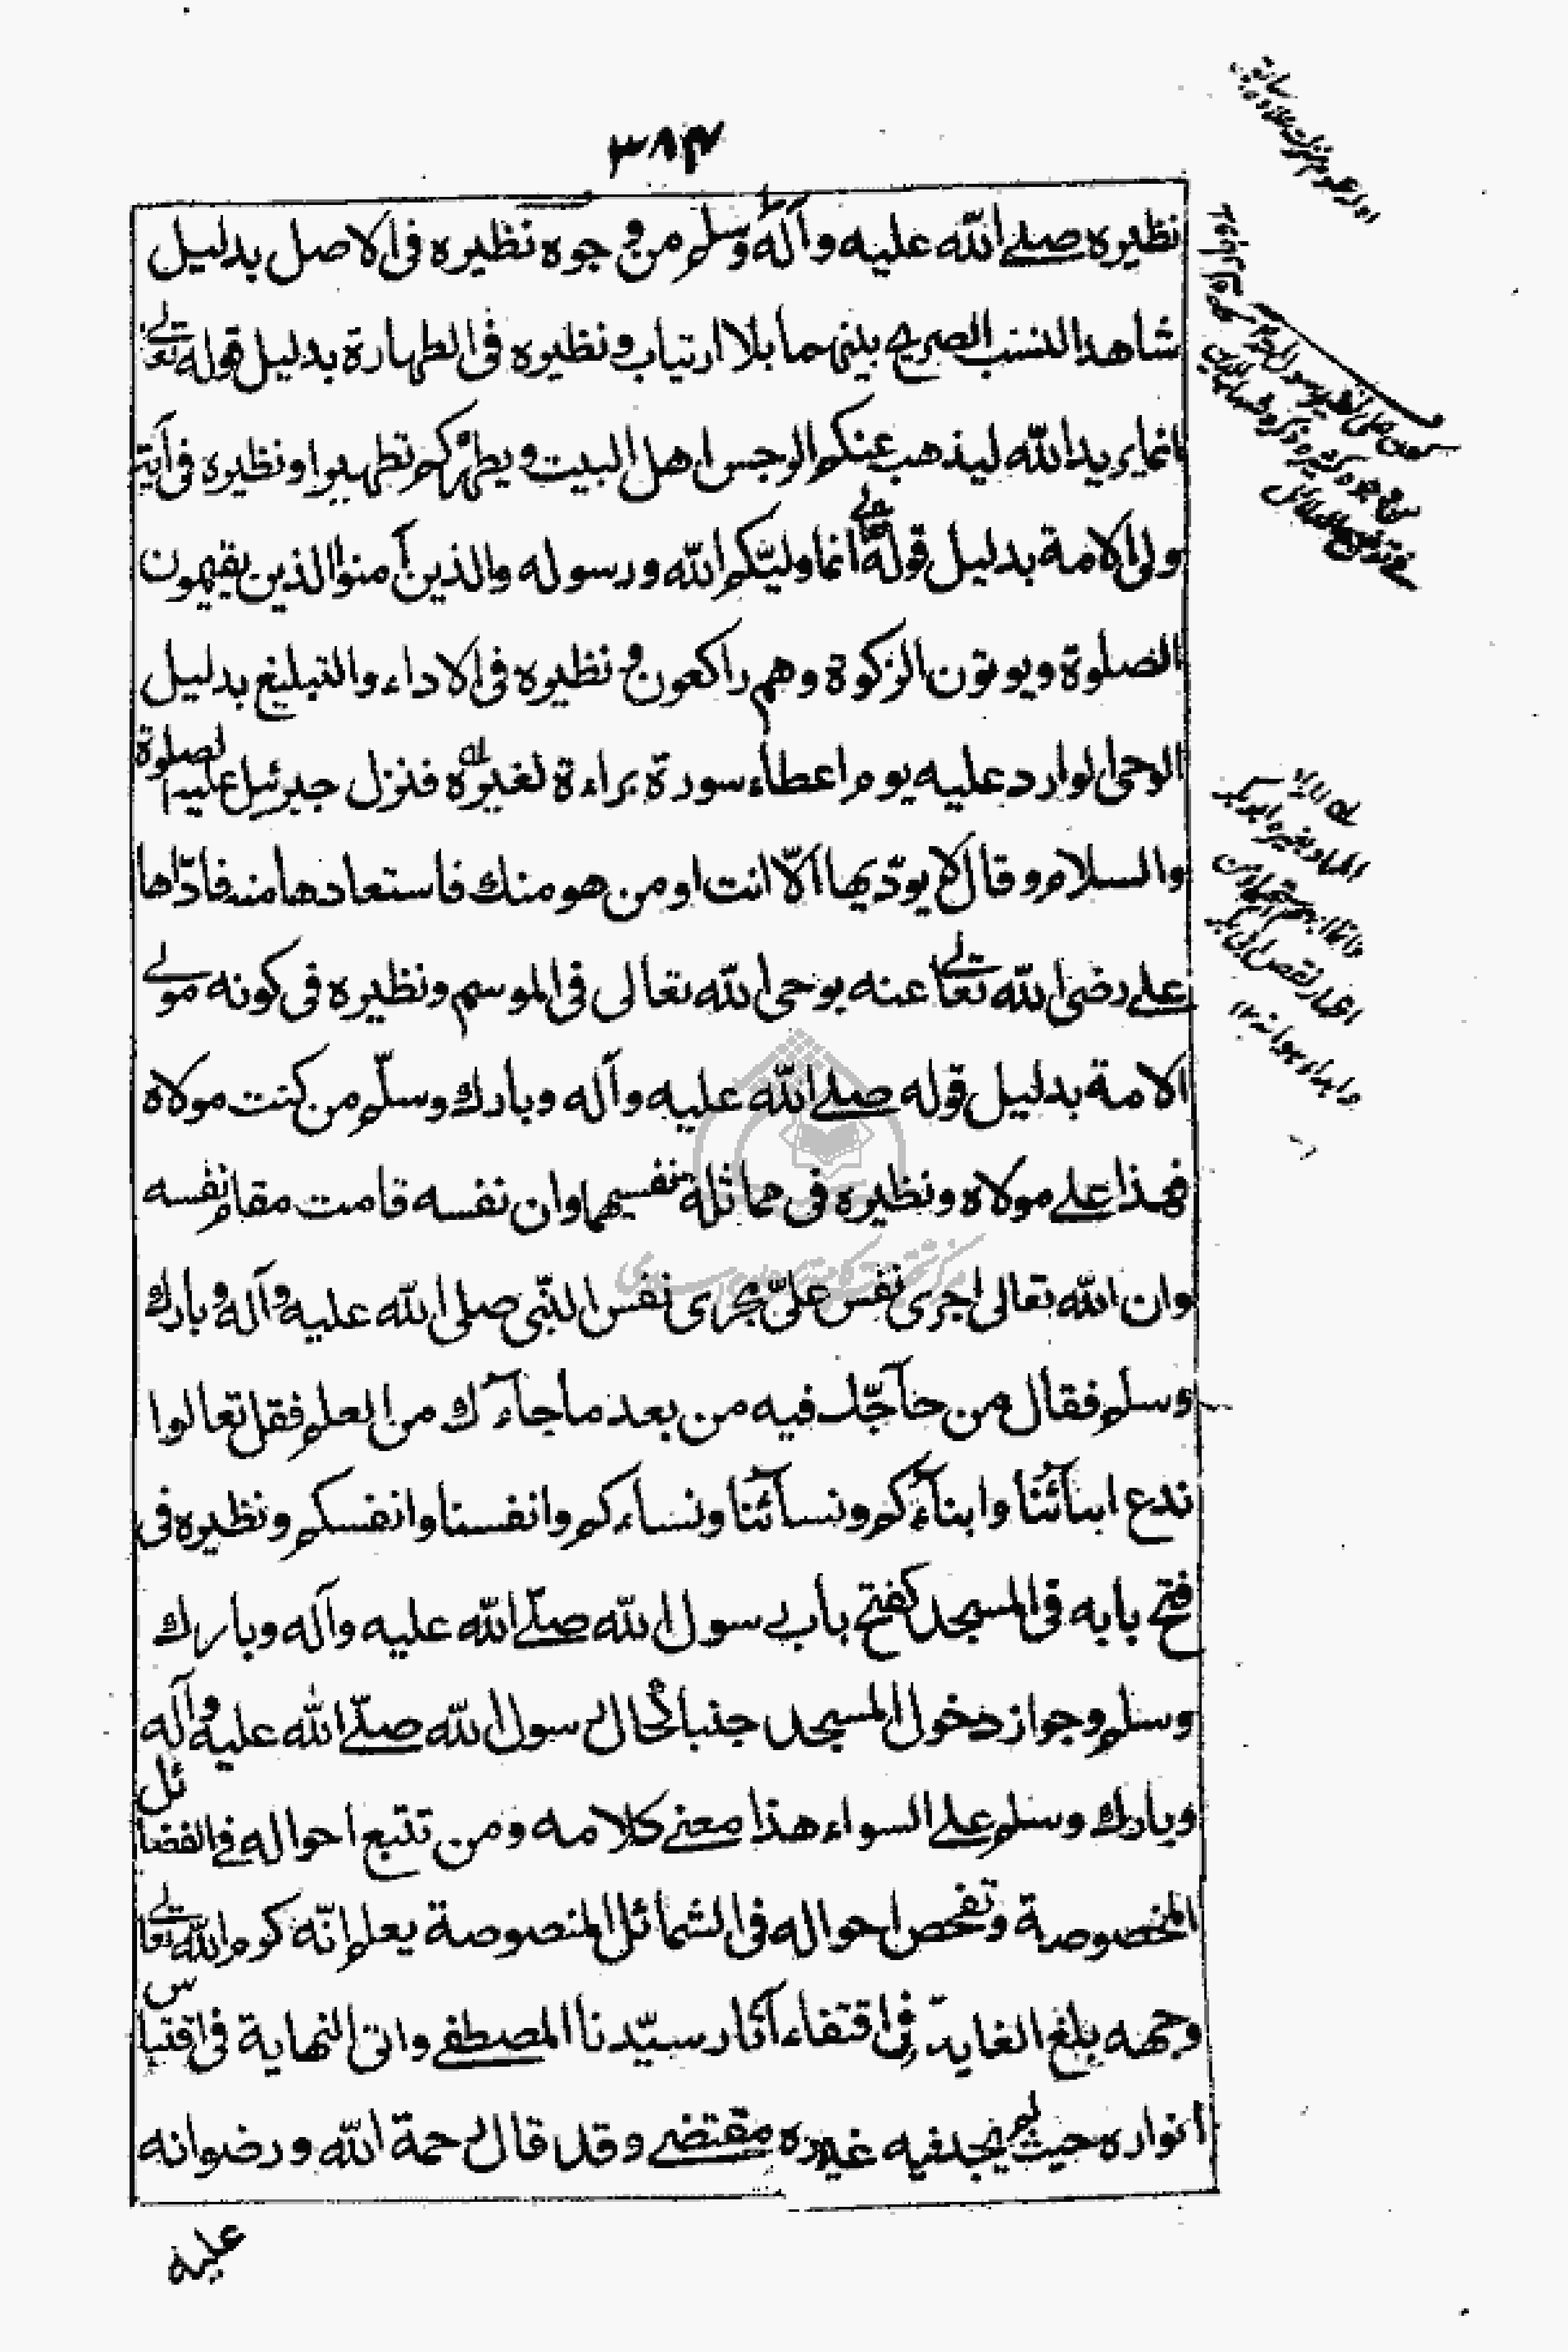 ٣٨۴
نظيره صلے الله عليه وآله وسلم من وجوه نظيره فى الاصل بدليل
شاهد النسب الصريح بينهما بلا ارتياب ونظيره فى الطهارة بدليل قوله تعالے
انما يريد الله ليذهب عنكم الرجس اهل البيت ويطهركم تطهيرا ونظيره فى آية
ولى الامة بدليل قوله انما وليّكم الله ورسوله والذين آمنوا الذين يقيمون
الصلوة ويوتون الزكوة وهم راكعون ونظيره فى الاداء والتبليغ بدليل
الوحى الوارد عليه يوم اعطاء سورة براءة لغيره فنزل جبرئيل عليه الصلوة
والسلام وقال لا يودّيها الّا انت او من هو منك فاستعادها منه فادّاها
علے رضى الله تعالے عنه بوحى الله تعالى فى الموسم ونظيره فى كونه مولے
الامة بدليل قوله صلے الله عليه وآله وبارك وسلّم من كنت مولاه
فهذا علے مولاه ونظيره فى مماثلة نفسيهما وان نفسه قامت مقام نفسه
وان الله تعالى اجرى نفس علىّ مجرى نفس النّبى صلى الله عليه وآله وبارك
وسلم فقال من حآجّك فيه من بعد ما جآءك من العلم فقل تعالوا
ندع ابنآئنا وابنآءكم ونسآئنا ونساءكم وانفسنا وانفسكم ونظيره فى
فتح بابه فى المسجد كفتح باب رسول الله صلّے الله عليه وآله وبارك
وسلم وجواز دخول المسجد جنبا كحال رسول الله صلّے الله عليه وآله
وبارك وسلم علے السواء هذا معنے كلامه ومن تتبع احواله فے الفضائل
المخصوصة وتفحص احواله فى الشمائل المنصوصة يعلم انّه كرم الله تعالے
وجهه بلغ الغاية فى اقتفاء آثار سيّدنا المصطفے واتى النهاية فى اقتباس
انواره حيث لم يجد فيه غيره مقتضے وقد قال رحمة الله ورضوانه
عليه